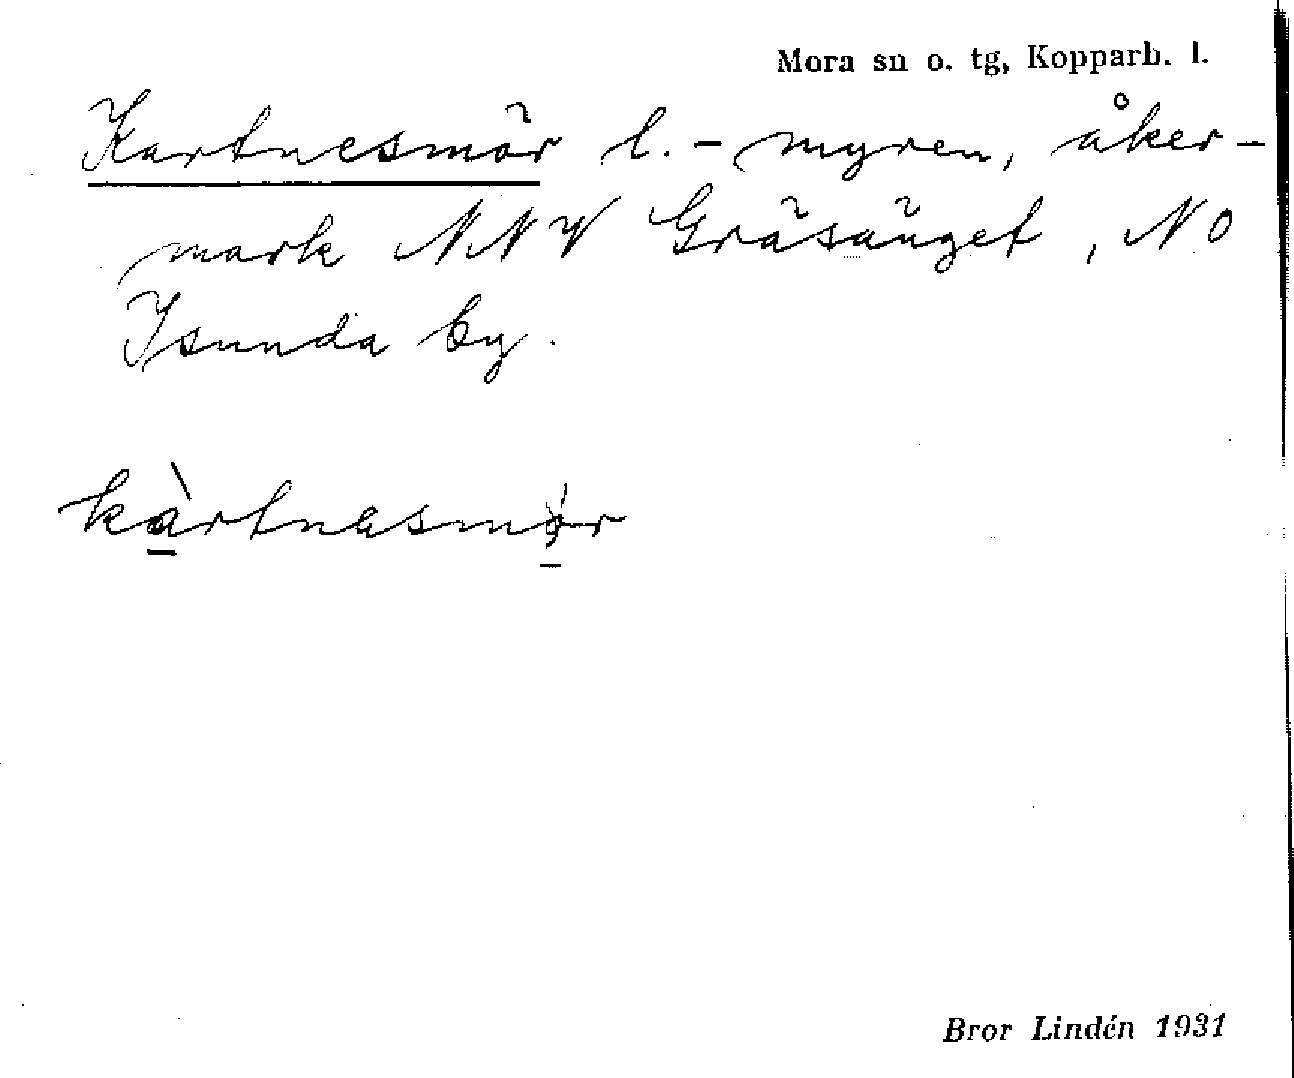 Mora sn o. tg, Kopparb. l.
Kartnesmör l. -myren, åker-
mark NNV Gräsänget, NO
Isunda by.
kàrtnasmǫ́r
Bror Lindén 1931